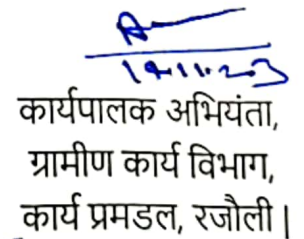 कार्यपालक अभियंता,
ग्रामीण कार्य विभाग,
कार्य प्रमडल, रजौली।